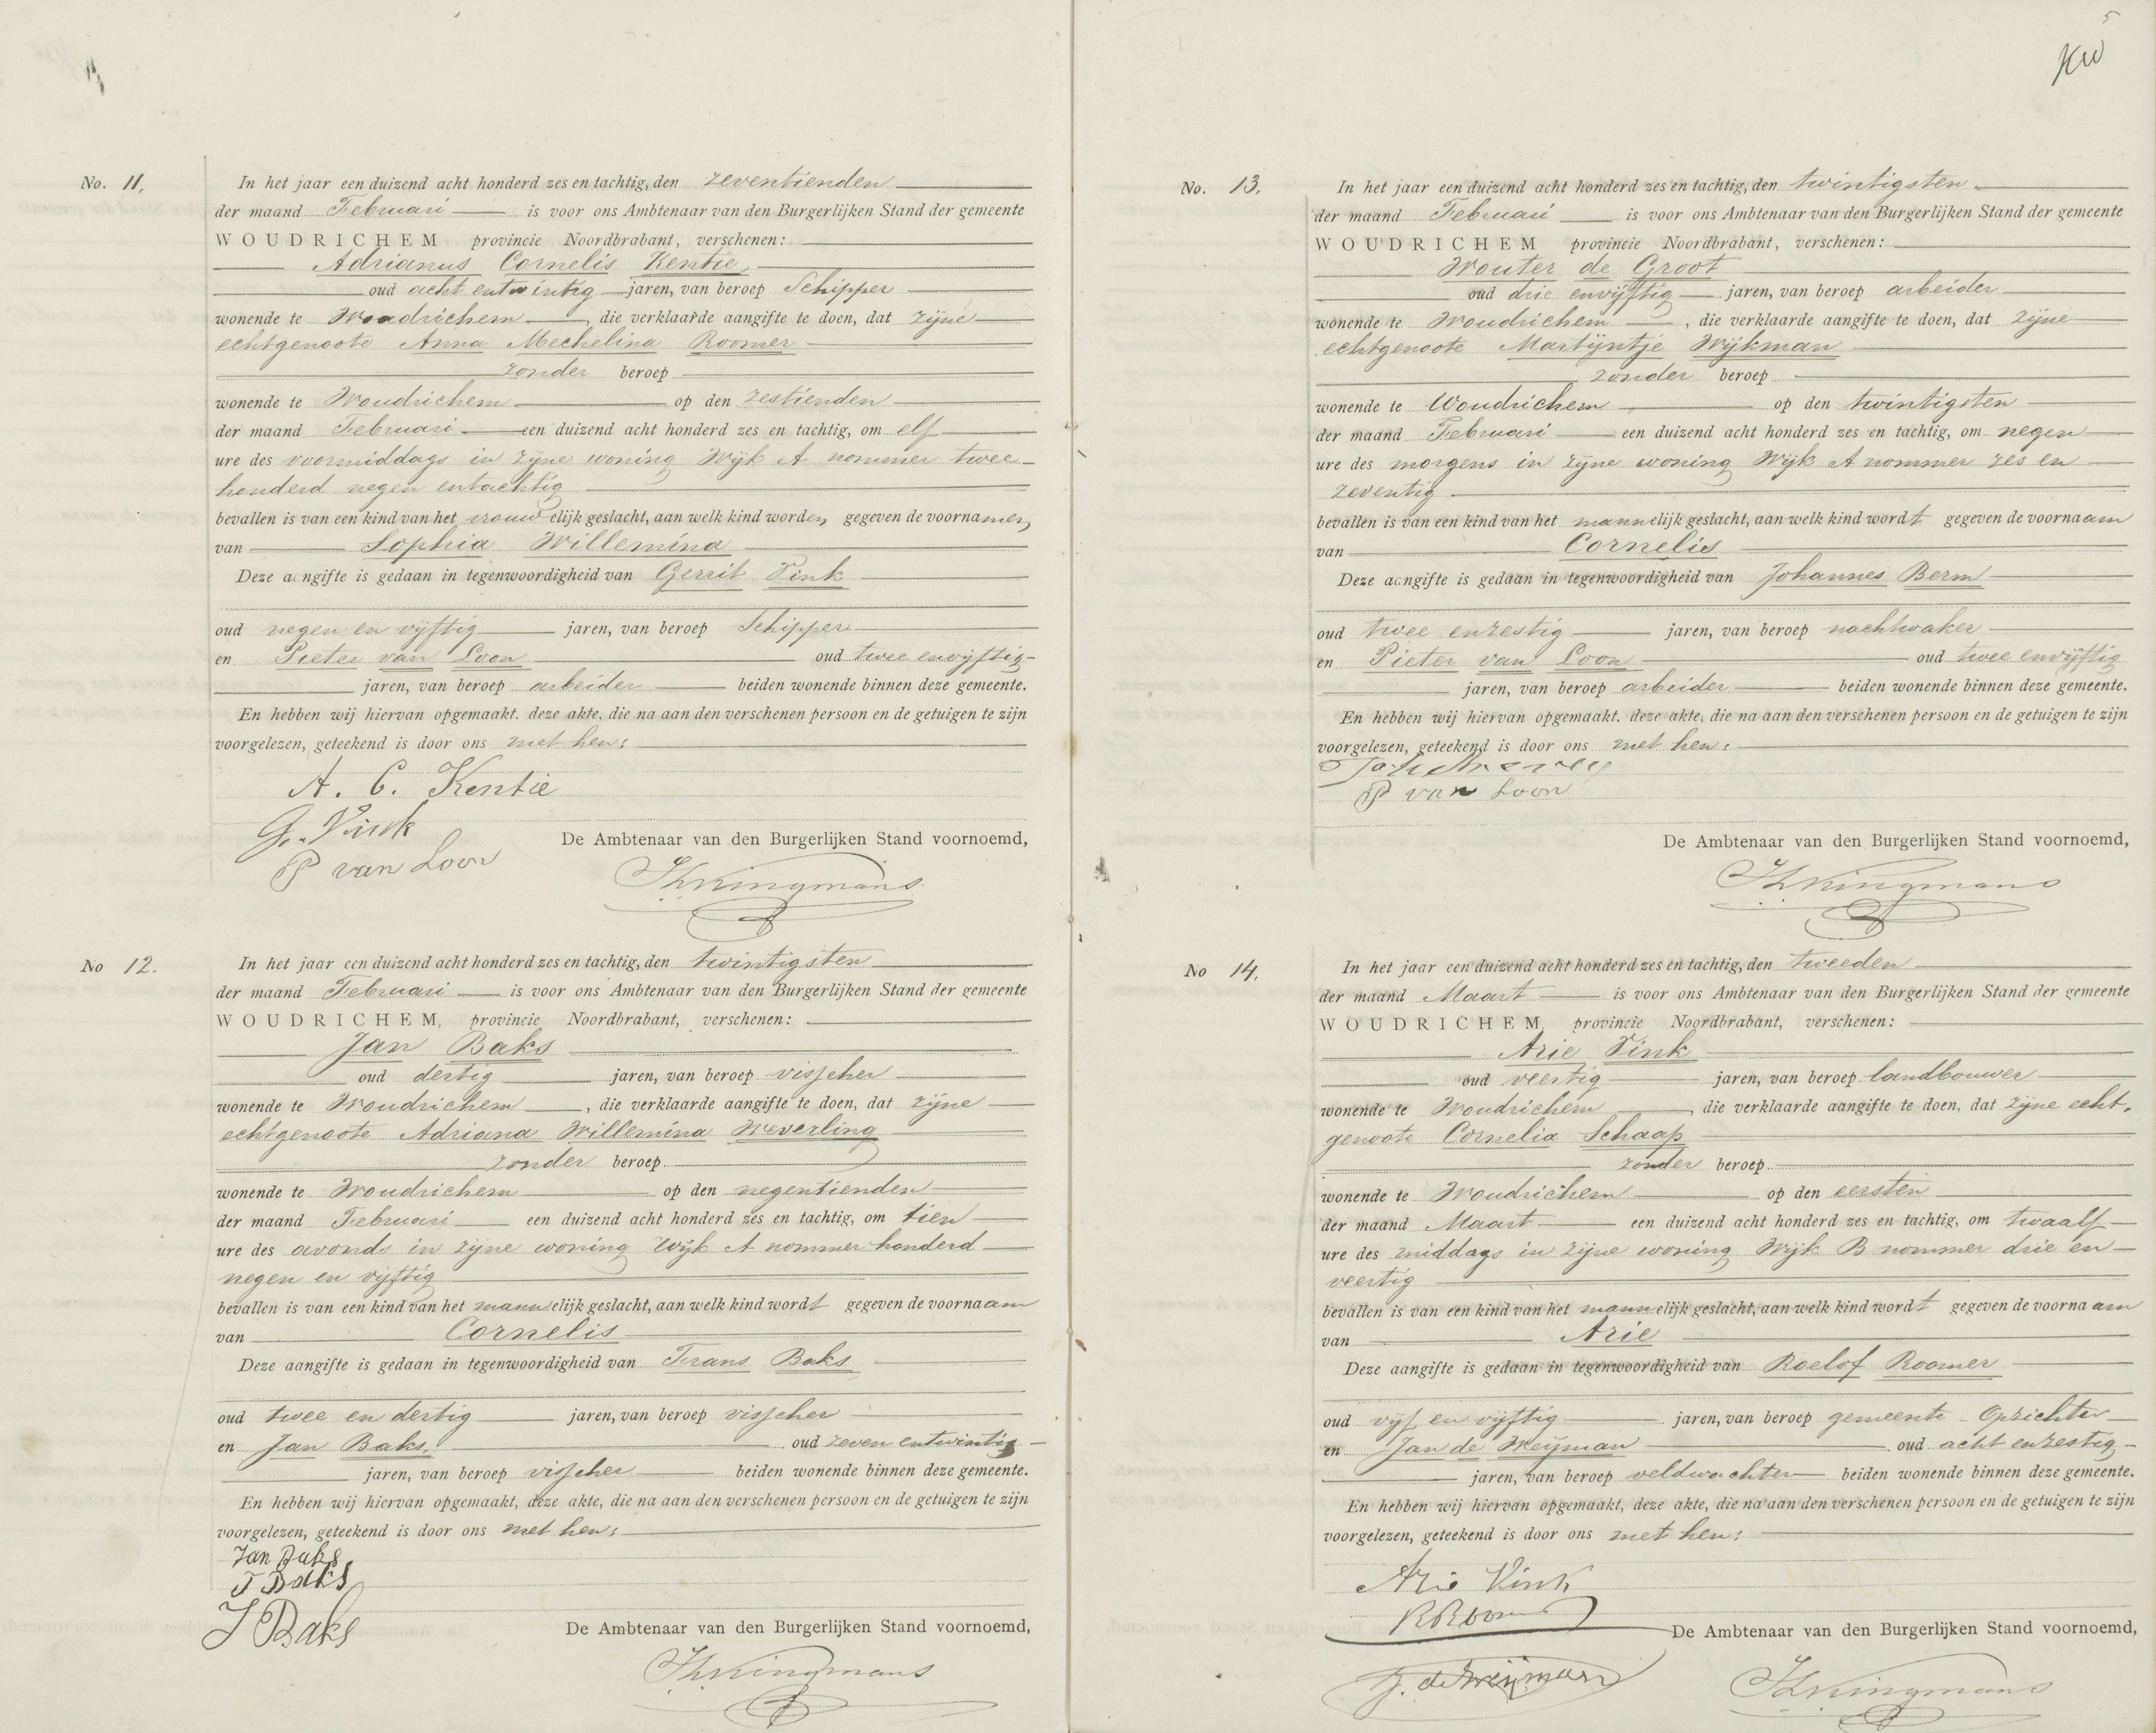 No. 11.
In het jaar een duizend acht honderd zes en tachtig, den zeventienden
der maand Februari is voor ons Ambtenaar van den Burgerlijken Stand der gemeente
WOUDRICHEM provincie Noordbrabant, verschenen:
Adrianus Cornelis Kentie,
oud acht en twintig jaren, van beroep Schipper
wonende te Woudrichem, die verklaarde aangifte te doen, dat zijne
echtgenoote Anna Mechelina Roomer
zonder beroep
wonende te Woudrichem op den zestienden
der maand Februari een duizend acht honderd zes en tachtig, om elf
ure des voormiddags in zijne woning Wijk A nommer twee
honderd negen entachtig
bevallen is van een kind van het vrouwelijk geslacht, aan welk kind worden gegeven de voornamen
van Sophia Willemina
Deze aangifte is gedaan in tegenwoordigheid van Gerrit Vink
oud negen en vijftig jaren, van beroep Schipper
en Pieter van Loon oud twee envijftig
jaren, van beroep arbeider beiden wonende binnen deze gemeente.
En hebben wij hiervan opgemaakt. deze akte, die na aan den verschenen persoon en de getuigen te zijn
voorgelezen, geteekend is door ons met hen:
A. C. Kentie
G. Vink
P van Loon
De Ambtenaar van den Burgerlijken Stand voornoemd,
No 12.
In het jaar een duizend acht honderd zes en tachtig, den twintigsten
der maand Februari is voor ons Ambtenaar van den Burgerlijken Stand der gemeente
WOUDRICHEM, provincie Noordbrabant, verschenen:
Jan Baks
oud dertig jaren, van beroep visscher
wonende te Woudrichem, die verklaarde aangifte te doen, dat zijne
echtgenoote Adriana Willemina Weverling
zonder beroep
wonende te Woudrichem op den negentienden
der maand Februari een duizend acht honderd zes en tachtig, om tien
ure des avonds in zijne woning Wijk A nommer honderd
negen en vijftig
bevallen is van een kind van het mannelijk geslacht, aan welk kind wordt gegeven de voornaam
van Cornelis
Deze aangifte is gedaan in tegenwoordigheid van Frans Baks
oud twee en dertig jaren, van beroep visscher
en Jan Baks, oud zeven entwintig
jaren, van beroep visscher beiden wonende binnen deze gemeente.
En hebben wij hiervan opgemaakt, deze akte, die na aan den verschenen persoon en de getuigen te zijn
voorgelezen, geteekend is door ons met hen:
Jan Baks
F Baks
J Baks
De Ambtenaar van den Burgerlijken Stand voornoemd,
5
No. 13.
In het jaar een duizend acht honderd zes en tachtig, den twintigsten
der maand Februari is voor ons Ambtenaar van den Burgerlijken Stand der gemeente
WOUDRICHEM provincie Noordbrabant, verschenen:
Wouter de Groot
oud drie envijftig jaren, van beroep arbeider
wonende te Woudrichem, die verklaarde aangifte te doen, dat zijne
echtgenoote Martijntje Wijkman
zonder beroep
wonende te Woudrichem op den twintigsten
der maand Februari een duizend acht honderd zes en tachtig, om negen
ure des morgens in zijne woning Wijk A nommer zes en
zeventig
bevallen is van een kind van het mannelijk geslacht, aan welk kind wordt gegeven de voornaam
van Cornelis
Deze aangifte is gedaan in tegenwoordigheid van Johannes Berm
oud twee enzestig jaren, van beroep nachtwaker
en Pieter van Loon oud twee envijftig
jaren, van beroep arbeider beiden wonende binnen deze gemeente.
En hebben wij hiervan opgemaakt. deze akte, die na aan den verschenen persoon en de getuigen te zijn
voorgelezen, geteekend is door ons met hen:
P van Loon
De Ambtenaar van den Burgerlijken Stand voornoemd,
No 14.
In het jaar een duizend acht honderd zes en tachtig, den tweeden
der maand Maart is voor ons Ambtenaar van den Burgerlijken Stand der gemeente
WOUDRICHEM, provincie Noordbrabant, verschenen:
Arie Vink
oud veertig jaren, van beroep landbouwer
wonende te Woudrichem, die verklaarde aangifte te doen, dat zijne echt-
genoote Cornelia Schaap
zonder beroep
wonende te Woudrichem op den eersten
der maand Maart een duizend acht honderd zes en tachtig, om twaalf
ure des middags in zijne woning Wijk B nommer drie en
veertig
bevallen is van een kind van het mannelijk geslacht, aan welk kind wordt gegeven de voornaam
van Arie
Deze aangifte is gedaan in tegenwoordigheid van Roelof Roomer
oud vijf en vijftig jaren, van beroep gemeente Opzichter
en Jan de Meijman oud acht enzestig
jaren, van beroep veldwachter beiden wonende binnen deze gemeente.
En hebben wij hiervan opgemaakt, deze akte, die na aan den verschenen persoon en de getuigen te zijn
voorgelezen, geteekend is door ons met hen:
Arie Vink
R Roomer
De Ambtenaar van den Burgerlijken Stand voornoemd,